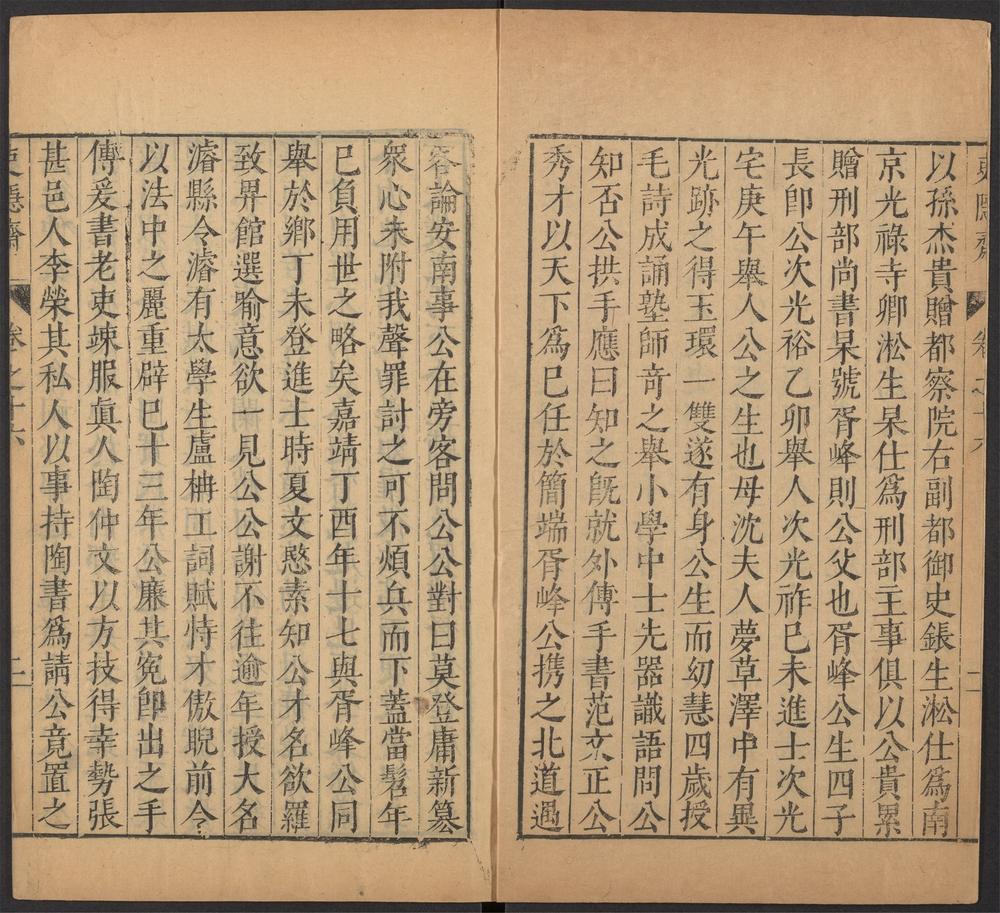 以孫杰貴贈都察院右副都御史鋹生淞仕爲南
京光祿寺卿淞生杲仕爲刑部主事俱以公貴累
贈刑部尚書杲號胥峰則公父也胥峰公生四子
長卽公次光裕乙卯舉人次光祚己未進士次光
宅庚午舉人公之生也母沈夫人夢草澤中有異
光跡之得玉環一雙遂有身公生而幼慧四歲授
毛詩成誦塾師奇之舉小學中士先器識語問公
知否公拱手應曰知之旣就外傅手書范文正公
秀才以天下爲已任於簡端胥峰公携之北道遇
客論安南事公在旁客問公公對曰莫登庸新篡
衆心未附我聲罪討之可不煩兵而下蓋當髫年
已負用世之略矣嘉靖丁酉年十七與胥峰公同
舉於鄉丁未登進士時夏文愍素知公才名欲羅
致畀館選喻意欲一見公公謝不往逾年授大名
濬縣令濬有太學生盧柟工詞賦恃才傲睨前令
以法中之麗重辟已十三年公廉其寃卽出之手
傅爰書老吏竦服眞人陶仲文以方技得幸勢張
甚邑人李榮其私人以事持陶書爲請公竟置之
卷之十六